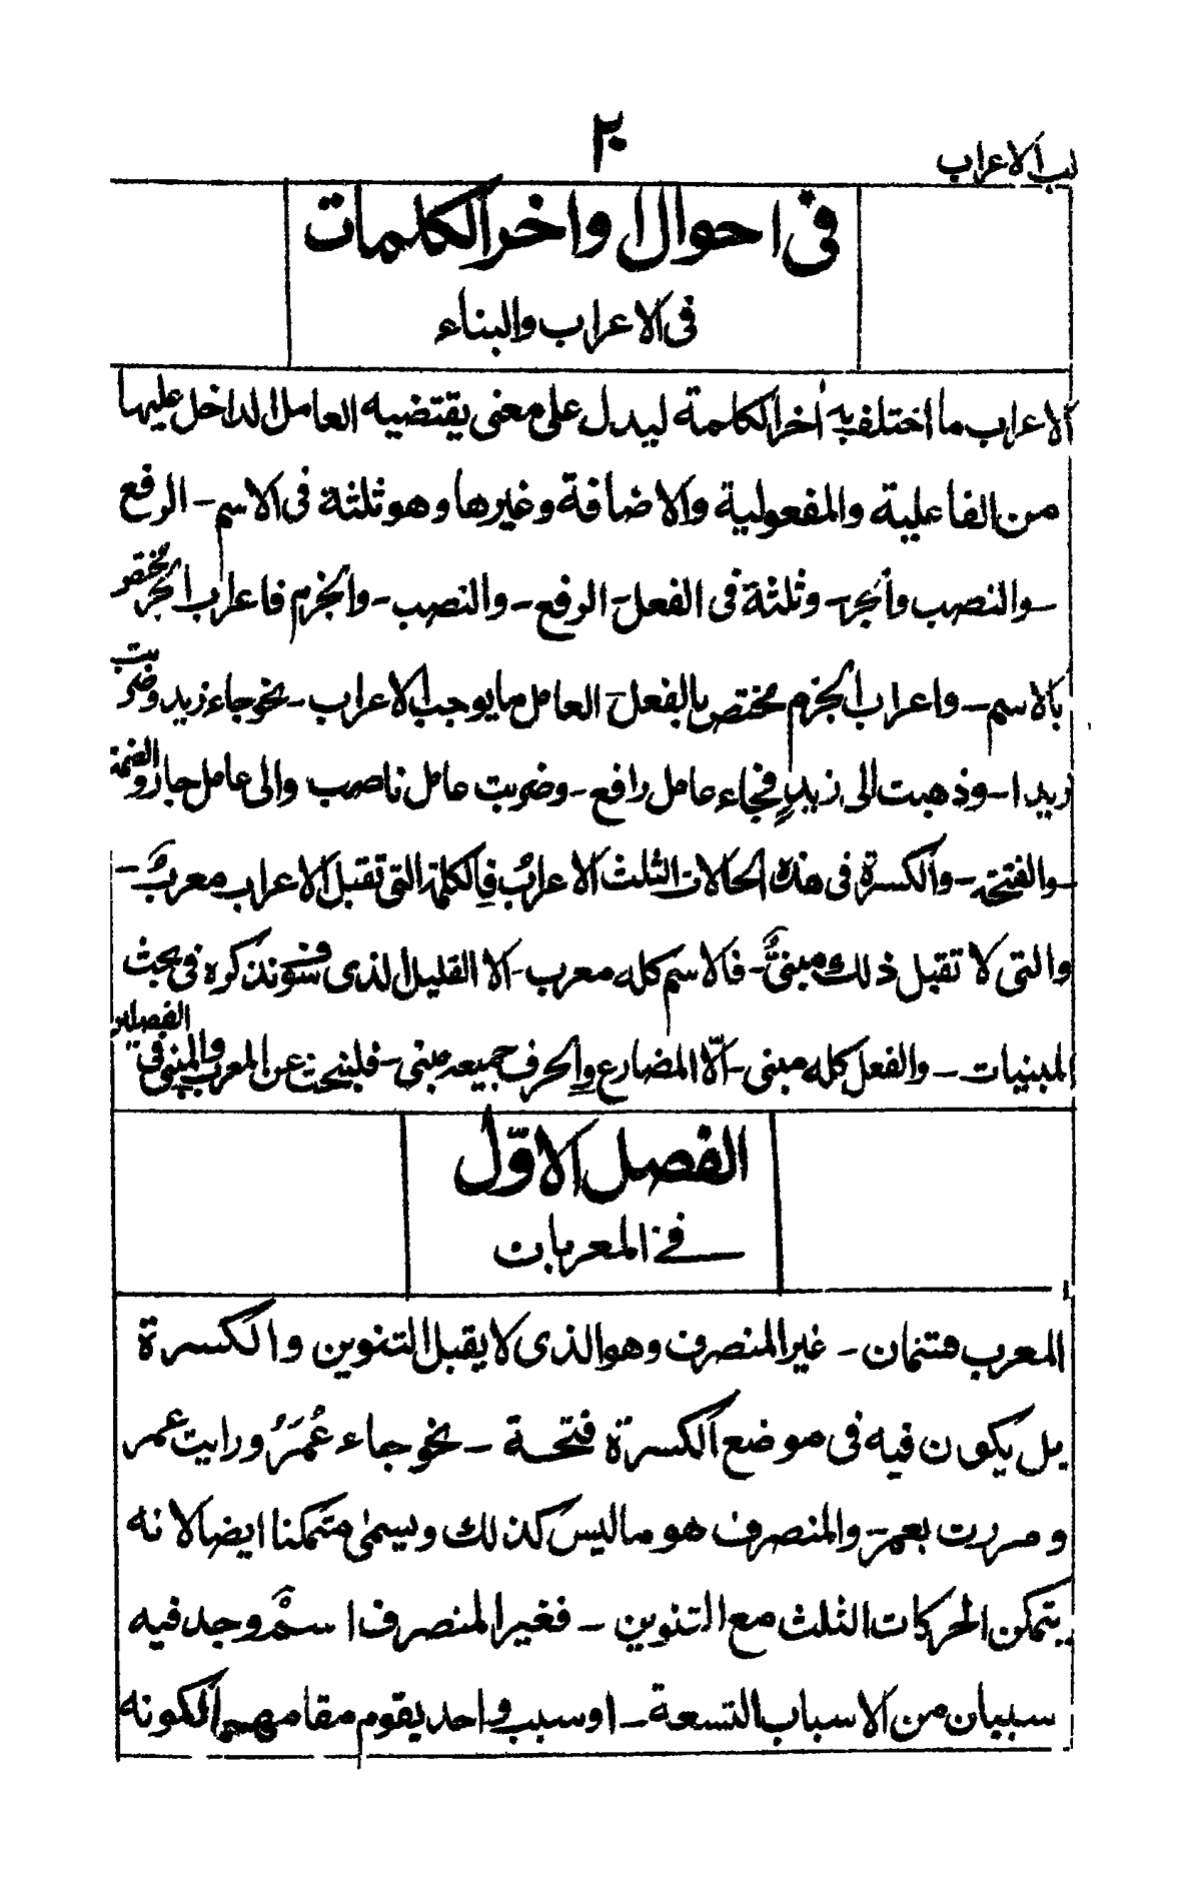 لب الاعراب
٢٠
فى احوال اواخر الكلمات
فى الاعراب والبناء
الاعراب ما اختلف به أخر الكلمة ليدل على معنى يقتضيه العامل الداخل عليها
من الفاعلية والمفعولية والاضافة وغيرها وهو ثلثة فى الاسم - الرفع
والنصب والجر - وثلثة فى الفعل - الرفع - والنصب - والجزم فاعراب الجر مختص
بالاسم - واعراب الجزم مختص بالفعل - العامل ما يوجب الاعراب - نحو جاء زيد وضربت
زيدا - وذهبت الى زيدٍ فجاء عامل رافع - وضربت عامل ناصب والى عامل جار والضمة
والفتحة - والكسرة فى هذه الحالات الثلث الاعرابُ فالكلمة التى تقبل الاعراب معربٌ -
والتى لا تقبل ذلك مبنىٌّ - فالاسم كله معرب - الا القليل الذى فسوف نذكره فى بحث
المبنيات - والفعل كله مبنى - الّا المضارع والحرف جميعه مبنى - فلنبحث عن المعرب والمبنى فى الفصلين
الفصل الاوّل
فى المعربات
المعرب قسمان - غير المنصرف وهو الذى لا يقبل التنوين والكسرة
بل يكون فيه فى موضع الكسرة فتحة - نحو جاء عُمَرُ ورايت عمر
ومررت بعمر - والمنصرف هو ما ليس كذلك ويسمى متمكنا ايضا لانه
يتمكن الحركات الثلث مع التنوين - فغير المنصرف اسمٌ وجد فيه
سببان من الاسباب التسعة - او سبب واحد يقوم مقامهما لكونه